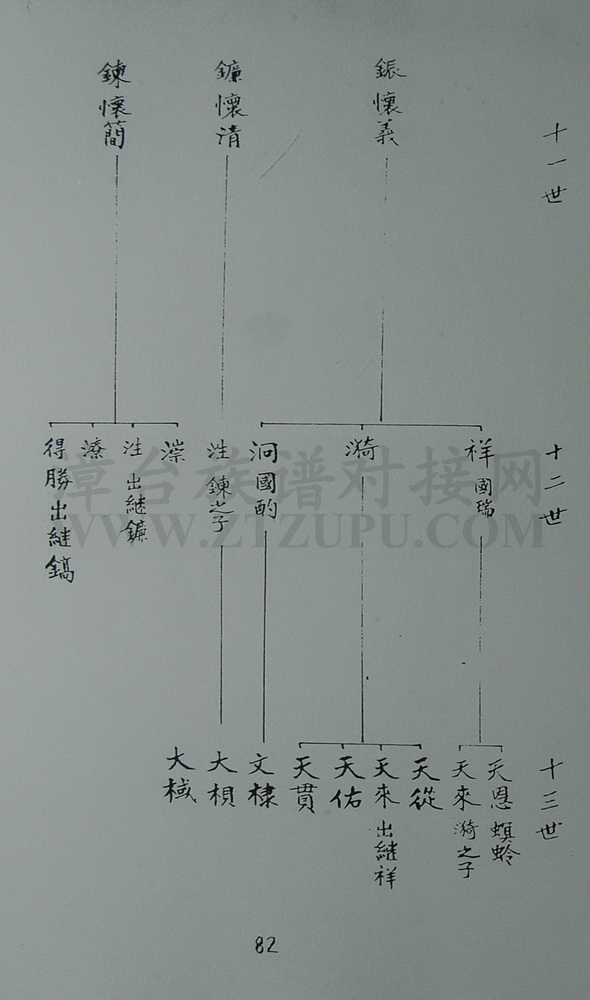 十一世
鋠懷義
鑣懷清
鍊懷簡
十二世
祥國瑞
漪
泂國酌
泩鍊之子
漴
泩出継鑣
潦
得勝出継鎬
十三世
天恩螟蛉
天來漪之子
天從
天來出継祥
天佑
天貫
文棣
大楨
大棫
漳台族谱对接网
WWW.ZTZUPU.COM
82